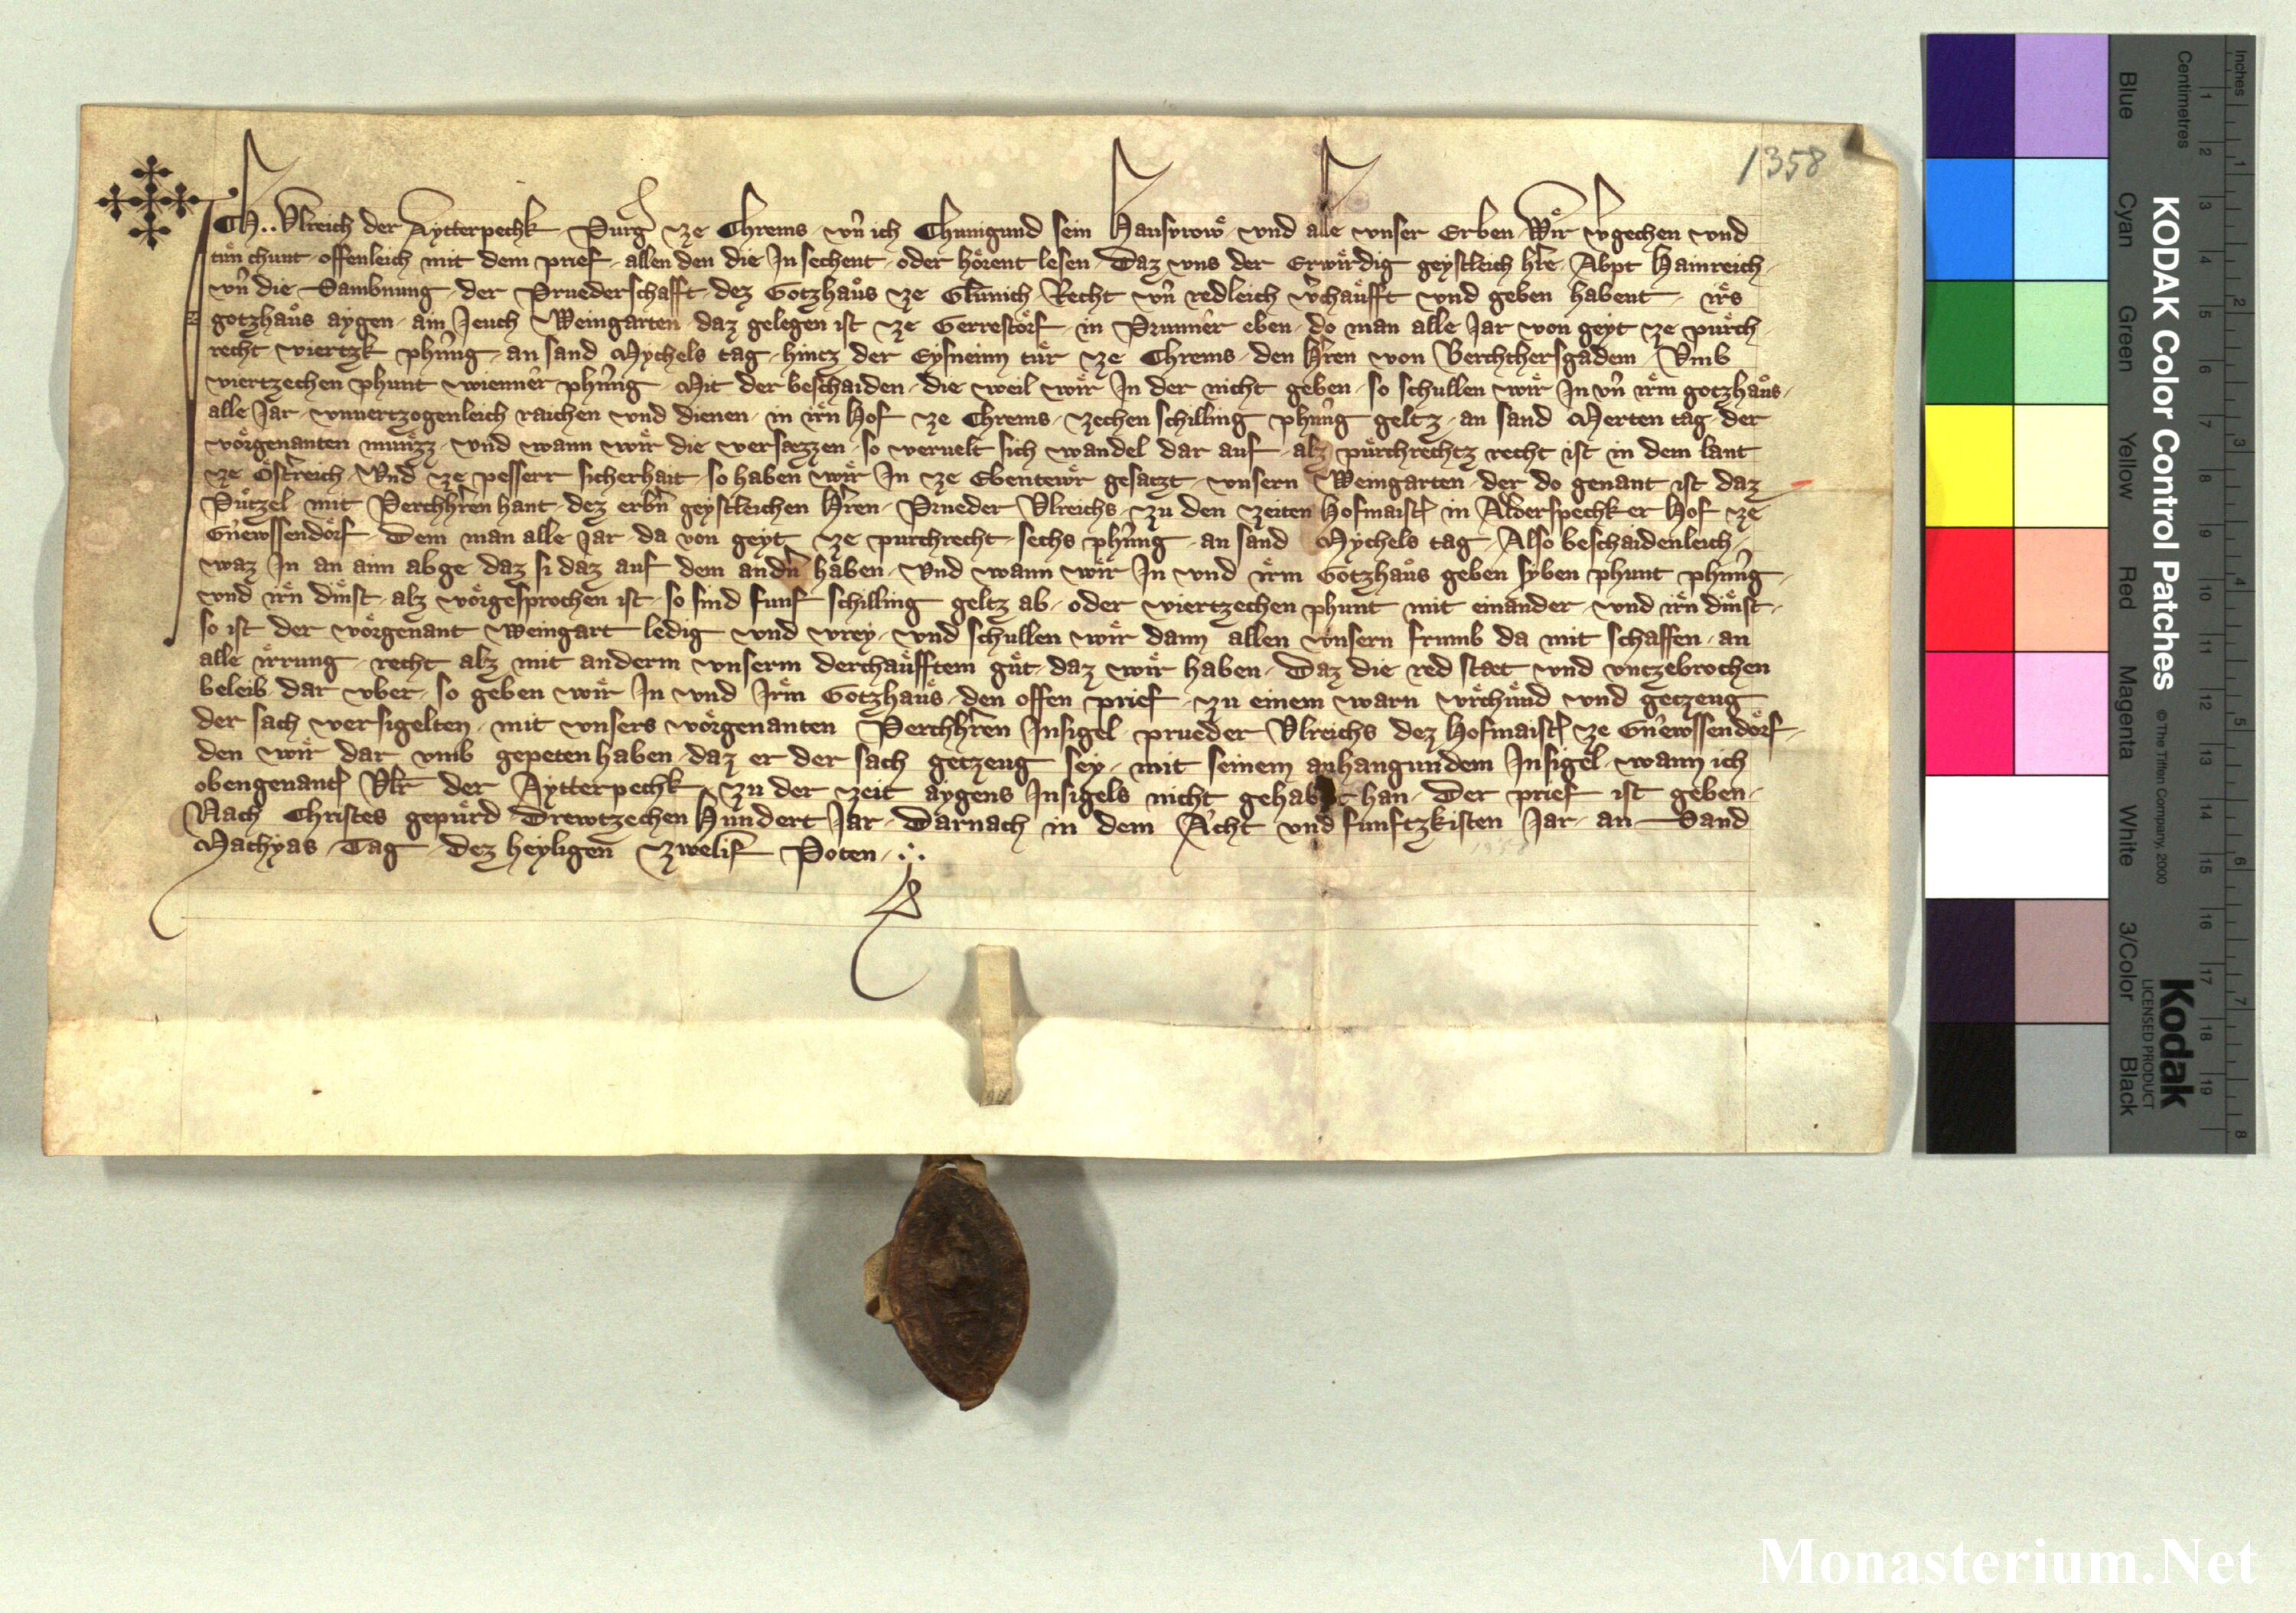 1358
ICH.. Vlreich der Aytterpechk Purg ze Chrems vn̄ ich Chunigund sein Hausvrow vnd alle vnser Erben Wir v̄gechen vnd
tun chunt offenleich mit dem prief allen den die In sechent oder hörent lesen Daz vns der Erwirdig geystleich h̄re Abpt Hainreich
vn̄ die Sambnung der Pruederschafft dez Gotzhaus ze Glunich Recht vn̄ redleich v̄chaufft vnd geben habent irs
gotzhaus aygen ain Jeuch Weingarten daz gelegen ist ze Gerrestorf in Prunner eben do man alle Jar von geyt ze purch
recht viertzk phn̄ing an sand Mychels tag hintz der Eysneinn tur ze Chrems den h̄ren von Berchthersgadem Vmb
viertzechen phunt wienner phn̄ing Mit der beschaiden die weil wir In der nicht geben so schullen wir In vn̄ irm gotzhaus
alle Jar vnuertzogenleich raichen vnd dienen in irn Hof ze Chrems zechen schilling phn̄ing geltz an sand Merten tag der
vorgenanten munzz vnd wann wir die versaezzen so veruelt sich wandel dar auf alz purchrechtz recht ist in dem lant
ze Osterreich Vnd ze pesserr sicherhait so haben wir In ze Ebentewr gesatzt vnsern Weingarten der do genant ist daz
Putzel mit Perchh̄ren hant dez erbn̄ geystleichen h̄ren Prueder Vlreichs zu den zeiten Hofmaist in Alderspechker Hof ze
Gnewssendorf Dem man alle Jar da von geyt ze purchrecht sechs phn̄ing an sand Mychels tag Also beschaidenleich
waz In an aim abge daz si daz auf dem andn̄ haben Vnd wann wir In vnd irm Gotzhaus geben syben phunt phn̄ing
vnd irn dinst alz vorgesprochen ist so sind funf schilling geltz ab oder viertzechen phunt mit einander vnd irn dinst
so ist der vorgenant Weingart ledig vnd vrey vnd schullen wir dann allen vnsern frumb da mit schaffen an
alle irrung recht alz mit anderm vnserm derchaufftem gut daz wir haben Daz die red staet vnd vntzebrochen
beleib dar vber so geben wir In vnd Irm Gotzhaus den offen prief zu einem warn vrchund vnd getzeug
der sach versigelten mit vnsers vorgenanten Perchh̄ren Insigel prueder Vlreichs dez Hofmaist ze Gnewssendorf
den wir dar vmb gepeten haben daz er der sach getzeug sey mit seinem anhangundem Insigel wann ich
obengenant Vlr der Aytterpechk zu der zeit aygens Insigels nicht gehabt han Der prief ist geben
Nach Christes gepurd Drewtzechen Hundert Jar Darnach in dem Acht vnd funftzkisten Jar an Sand
Mathyas Tag dez heyligen zwelif Poten
Inches
Centimetres
KODAK Color Control Patches
© The Tiffen Company, 2000
Kodak
LICENSED PRODUCT
Blue Cyan Green Yellow Red Magenta White 3/Color Black
1 2 3 4 5 6 7 8 9 10 11 12 13 14 15 16 17 18 19
1 2 3 4 5 6 7 8
Monasterium.Net